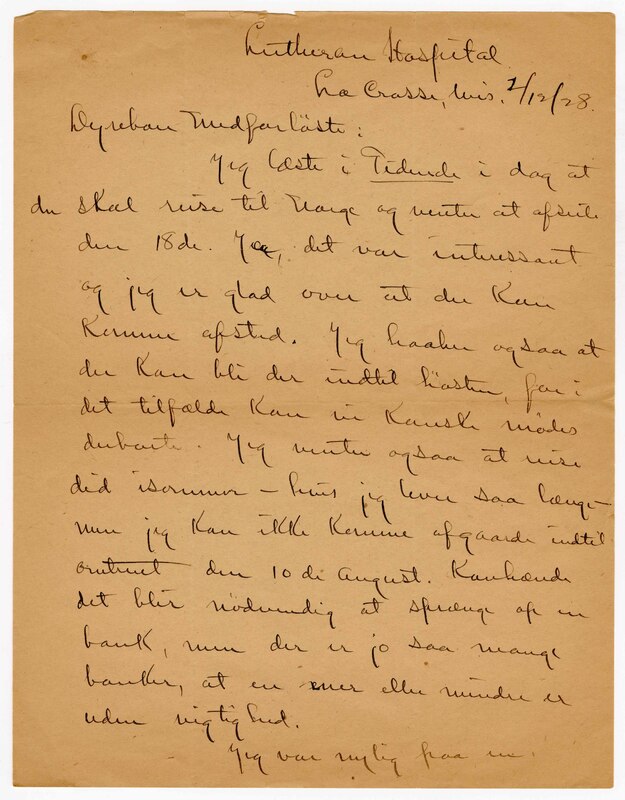 Lutheran Hospital
La Crosse, Wis. 2/12/28.
Dyrebare Medforløste:
Jeg læste i Tidende i dag at
du skal reise til Norge og venter at afseile
den 18de. Ja, det var interessant
og jeg er glad over at du kan
komme afsted. Jeg haaber ogsaa at
du kan bli der indtil høsten, for i
det tilfælde kan vi kanske mødes
derborte. Jeg venter ogsaa at reise
did isommer – hvis jeg lever saa længe –
men jeg kan ikke komme afgaarde indtil
omtrent den 10de August. Kanhænde
det blir nødvendig at sprænge op en
bank, men der er jo saa mange
banker, at en mer eller mindre er
uden vigtighed.
Jeg var nylig fraa en